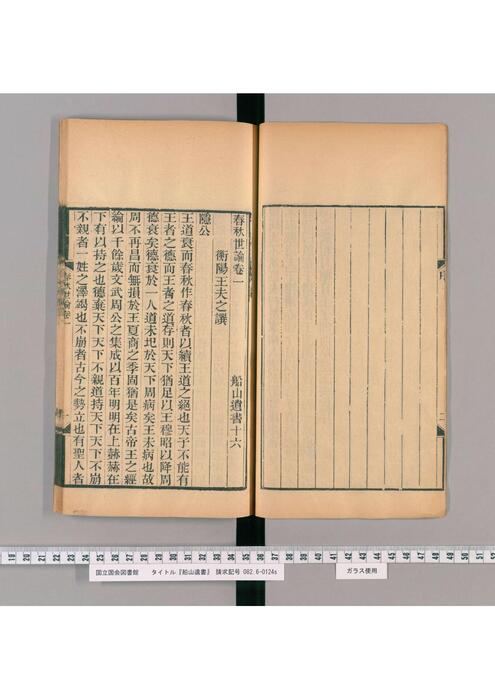 序
二
春秋世論卷一
船山遺書十六
衡陽王夫之譔
隱公
王道衰而春秋作春秋者以續王道之絕也天子不能有
王者之德而王者之道存則天下猶足以王穆昭以降周
德衰矣德衰於一人道未圯於天下周病矣王未病也故
周不再昌而無損於王夏商之季固猶是矣古帝王之經
綸以千餘歲文武周公之集成以百年明明在上赫赫在
下有以持之也德棄天下天下不親道持天下天下不崩
不親者一姓之澤竭也不崩者古今之勢立也有聖人者
春秋世論卷一
国立国会図書館 タイトル『船山遺書』 請求記号 082.6-0124s
ガラス使用